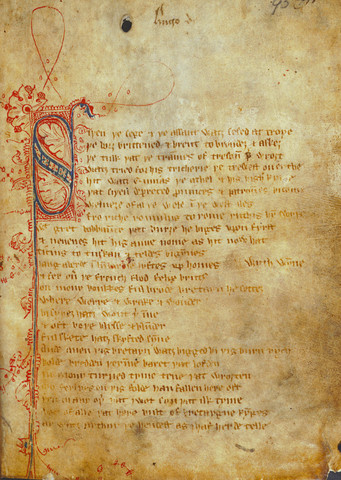 Hugo d
Siþen þe sege & þe assaut watz sesed at troye
þe borȝ brittened & brent to brondez & askez
þe tulk þat þe trammes of tresoun þer wroȝt
watz tried for his tricherie þe trewest on erthe
hit watz ennias þe athel & his highe kynde
þat siþen depreced prouinces & patrounes bicome
welneȝe of al þe wele in þe west iles
fro riche romulus to rome ricchis hym swyþe
gret bobbaunce þat burȝe he biges vpon fyrst
& neuenes hit his aune nome as hit now hat
ticius to tuskan & teldes bigynnes
langaberde in lumbardie lyftes vp homes wyth wynne
& fer ouer þe french flod felix brutus
on mony bonkkes ful brode bretayn he settez
where werre & wrake & wonder
bi syþez hatz wont þer inne
& oft boþe blysse & blunder
ful skete hatz skyfted synne
Ande quen þis bretayn watz bigged bi þis burn rych
bolde bredden þer inne baret þat lofden
in mony turned tyme tene þat wroȝten
mo ferlyes on þis folde han fallen here oft
þen in any oþer þat I wot syn þat ilk tyme
bot of alle þat here bult of bretaygne kynges
ay watz arthur þe hendest as I haf herde telle